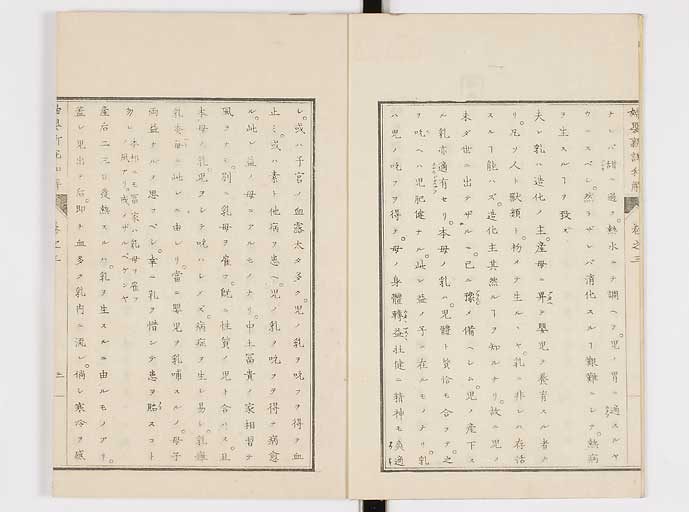 婦嬰新説和解 巻之三
ナレバ甜ニ過ク熱水ニテ調ヘヨ児ノ胃ニ適スルヤ
ウニスベシ。然ラザレバ消化スルヿ艱難ニシテ。熱病
ヲ生スルヿヲ致ス
夫レ乳ハ造化ノ主。産母ニ昇テ嬰児ヲ養育スル者ナ
リ。凡ソ人ト獣類ト。均シク生ルヽヤ。乳ニ非レハ存活
スルヿ能ハズ。造化主其然ルヿヲ知ルナリ。故ニ児ノ
未ダ世ニ出テザルニ。已ニ豫メ備ヘシム。児ノ産下ス
ル乳亦適有セリ。本母ノ乳ハ。児體ト質恰モ合フテ。之
ヲ吮ヘハ児肥健ナル。此レ益ノ子ニ在ルモノナリ。乳
ハ児ノ吮フヲ得テ。母ノ身體轉益壮健ニ精神モ爽適
レ。或ハ子宮ノ血露太タ多ク。児ノ乳ヲ吮フヲ得テ血
止ミ。或ハ素ト他病ヲ患ヘ。児ノ乳ヲ吮フヲ得テ病愈
ル。此レ益ノ母ニアルモノナリ。中土冨貴ノ家相習テ
風ヲナシ。別ニ乳母ヲ雇フ。既ニ性質ノ児ト合ハス。且
本母ノ乳児ヲシテ吮ハシメズ。病症ヲ生シ易シ。乳癰
乳瘡皆此レニ由レリ。當ニ嬰児ヲ乳哺スルノ。母子
両益ナルヲ思フベシ。幸ニ乳ヲ惜ンテ患ヲ貽スコト
勿レ 本邦ニモ冨家ハ乳母ヲ雇フノ風アリ。戒メザルベケンヤ
産后二三日發熱スルハ。乳ヲ生スルニ由ルモノアリ。
蓋シ児出テ后。即チ血多ク乳内ニ流レ。倘シ寒冷ヲ感
巻之三 二